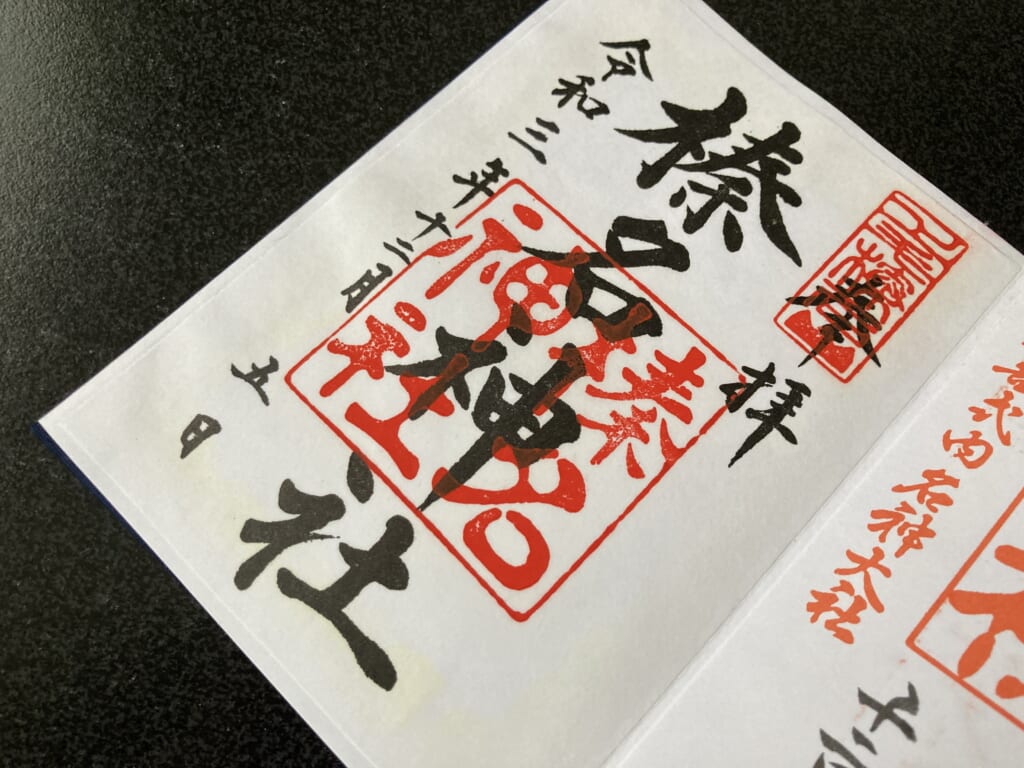 式内
名神大社
十二
奉拝
榛名神社
榛名神社
令和三年十二月五日